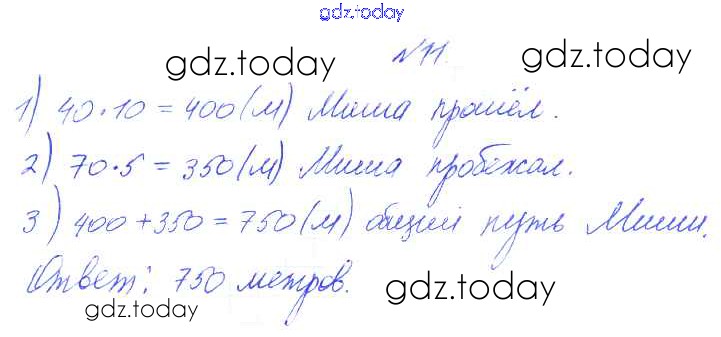 gdz.today
№11.
gdz.today gdz.today
1) 40·10 = 400 (м) Миша прошёл.
2) 70·5 = 350 (м) Миша пробежал.
gdz.today gdz.today
3) 400 + 350 = 750 (м) общий путь Миши.
Ответ: 750 метров.
gdz.today gdz.today